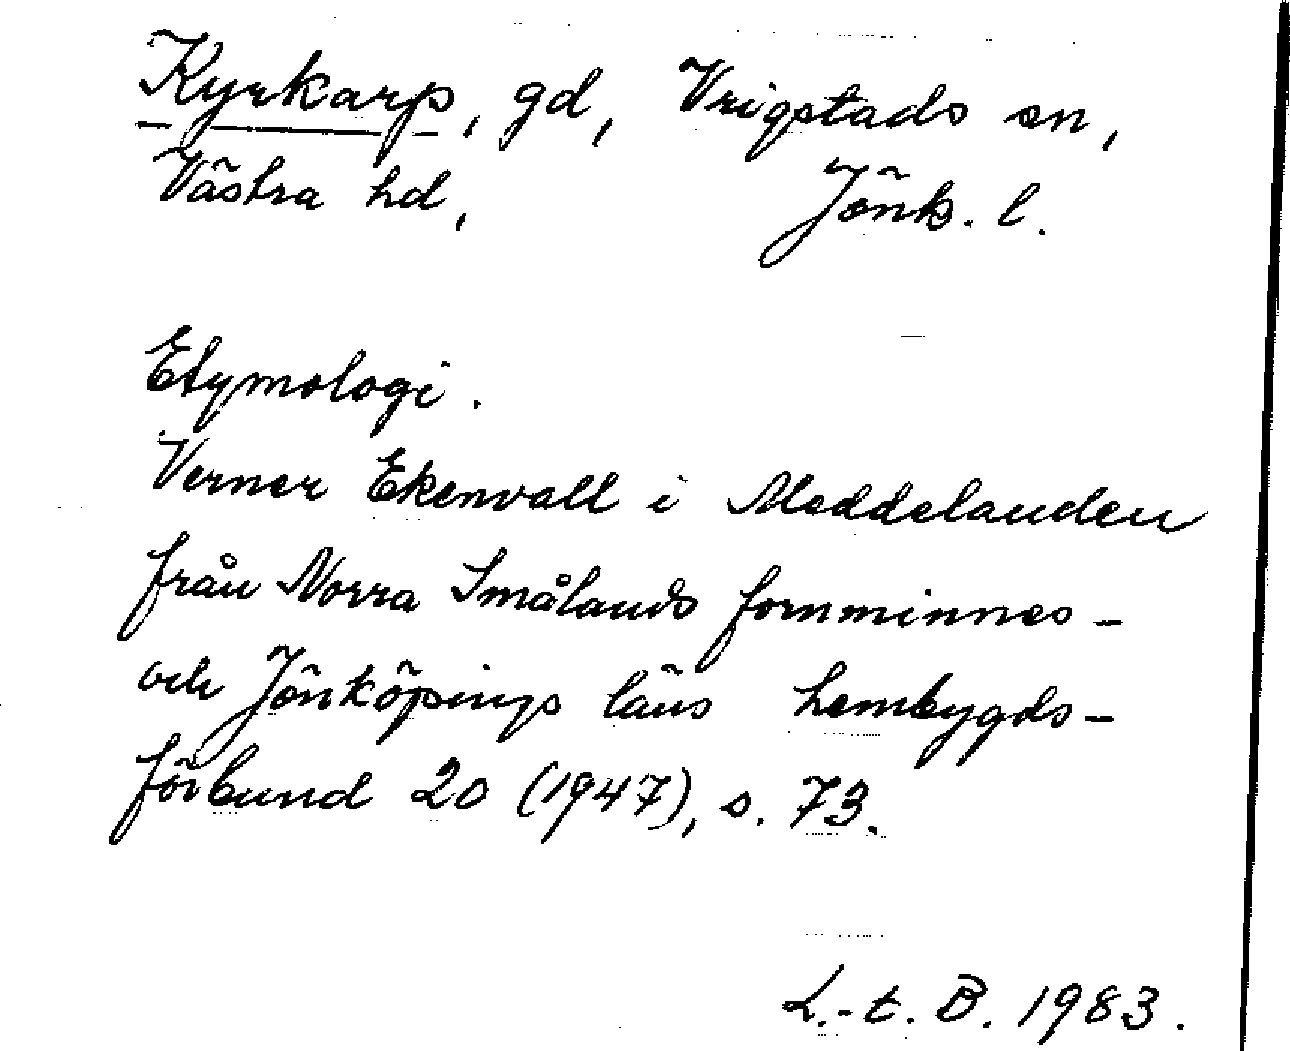 Kyrkarp, gd, Vrigstads sn,
Västra hd, Jönk. l.
Etymologi.
Verner Ekenvall i Meddelanden
från Norra Smålands fornminnes-
och Jönköpings läns hembygds-
förbund 20 (1947), s. 73.
L.-t. B. 1983.